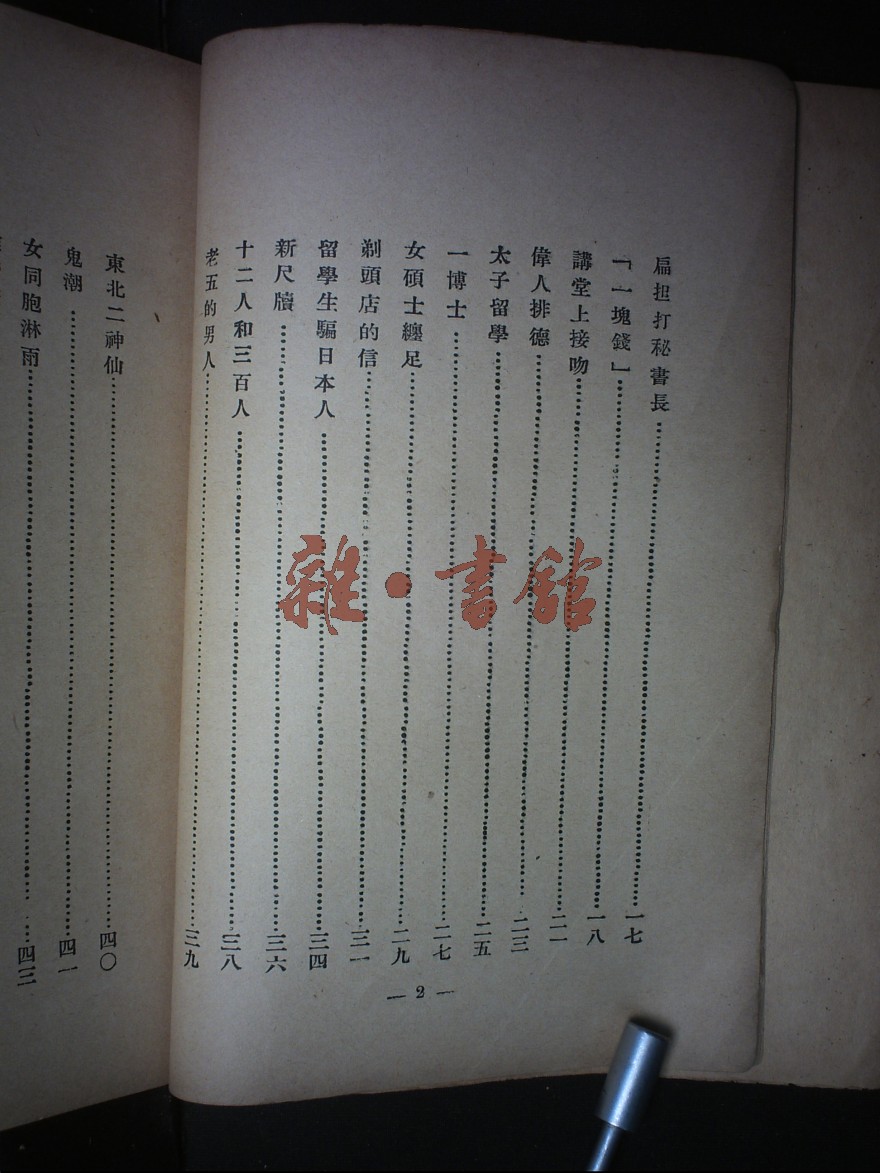 扁担打秘書長……一七
「一塊錢」……一八
講堂上接吻……二一
偉人排德……二三
太子留學……二五
一博士……二七
女碩士纏足……二九
剃頭店的信……三一
留學生騙日本人……三四
新尺牘……三六
十二人和三百人……三八
老五的男人……三九
— 2 —
東北二神仙……四〇
鬼潮……四一
女同胞淋雨……四三
雜·書館